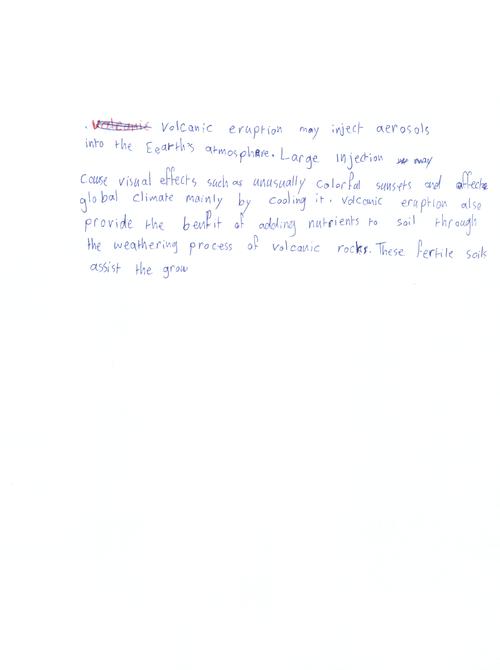 . Volcanic eruption may inject aerosols
into the Eearth's atmosphere. Large Injection may
Cause visual effects, such as unusually Colorful sunsets and affects
global climate mainly by cooling it. volcanic eruption also
provide the benfit of adding nutrients to soil through
the weathering process of volcanic rocks. These fertile soils
assist the grow